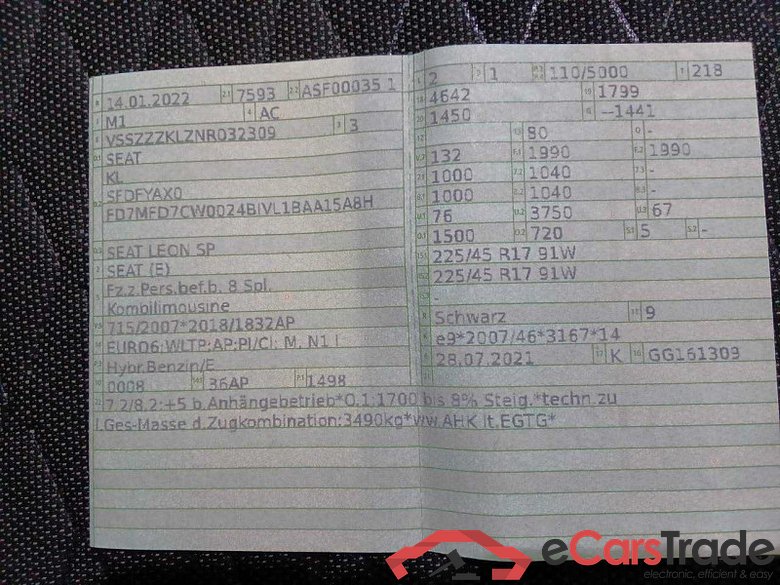 14.01.2022 7593 ASF00035 1
M1 AC
VSSZZZKLZNR032309 3
SEAT
KL
SFDFYAX0
FD7MFD7CW0024BIVL1BAA15A8H
SEAT LEON SP
SEAT (E)
Fz.z.Pers.bef.b. 8 Spl.
Kombilimousine
715/2007*2018/1832AP
EURO6;WLTP;AP;PI/CI; M, N1 I
Hybr.Benzin/E
0008 36AP 1498
2 1 110/5000 218
4642 1799
1450 --1441
80 -
132 1990 1990
1000 1040 -
1000 1040 -
76 3750 67
1500 720 5 -
225/45 R17 91W
225/45 R17 91W
-
Schwarz 9
e9*2007/46*3167*14
28.07.2021 K GG161309
7.2/8.2:+5 b.Anhängebetrieb*O.1:1700 bis 8% Steig.*techn.zu
l.Ges-Masse d.Zugkombination:3490kg*vvw.AHK lt.EGTG*
eCarsTrade
electronic, efficient & easy